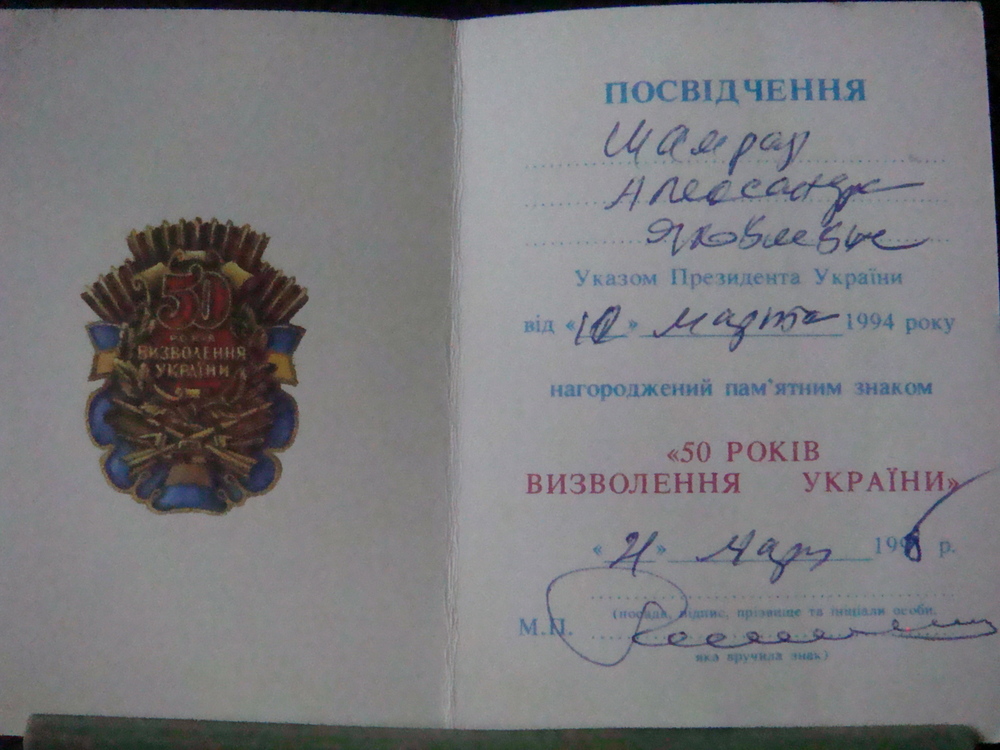 50
РОКІВ
ВИЗВОЛЕННЯ
УКРАЇНИ
ПОСВІДЧЕННЯ
Шамрай
Александр
Яковлевич
Указом Президента України
від «10» Марта 1994 року
нагороджений пам'ятним знаком
«50 РОКІВ
ВИЗВОЛЕННЯ УКРАЇНИ»
« » Март 199 р.
(посада, підпис, прізвище та ініціали особи,
М.П.
яка вручила знак)